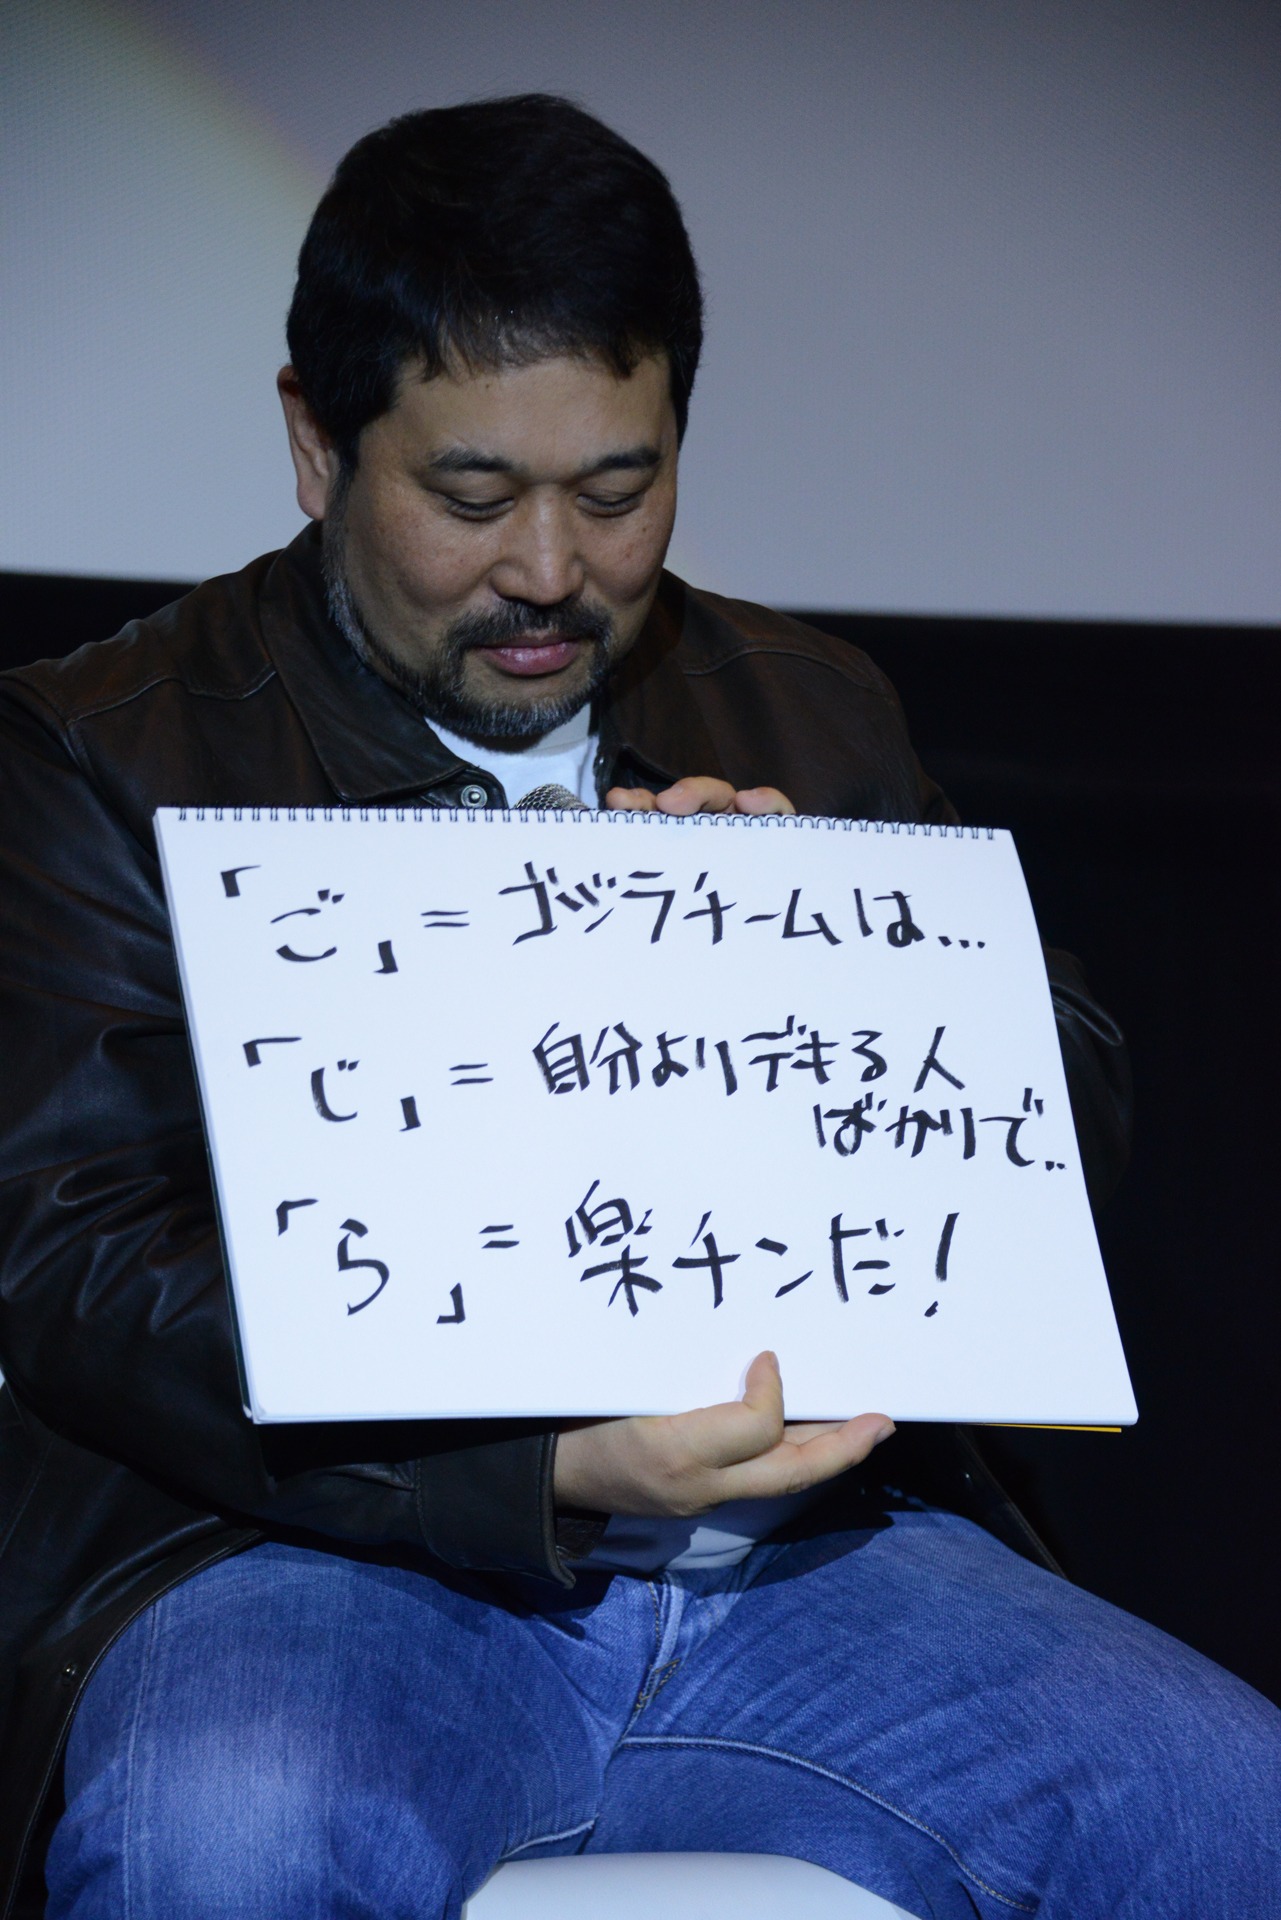 「ご」=ゴジラチームは...
「じ」=自分よりデキる人
ばかりで..
「ら」=楽チンだ!